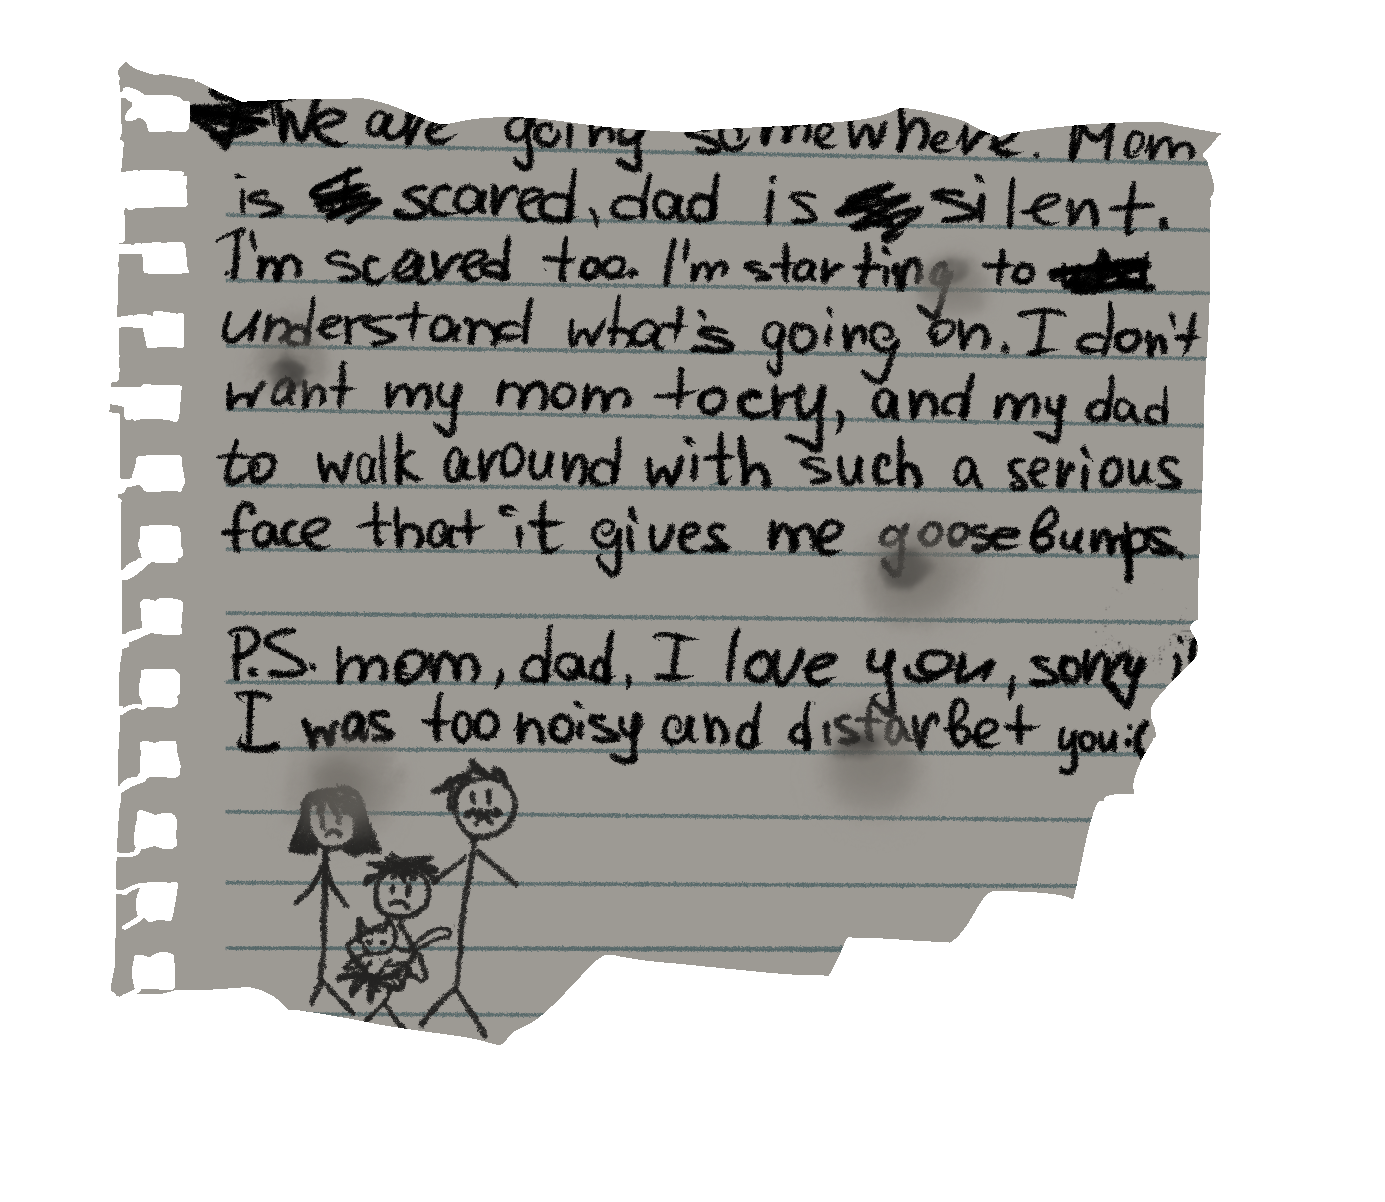 We are going somewhere. Mom
is scared, dad is silent.
I'm scared too. I'm starting to
understand what's going on. I don't
want my mom to cry, and my dad
to walk around with such a serious
face that it gives me goosebumps.
P.S. mom, dad, I love you, sorry
I was too noisy and distarbet you:(